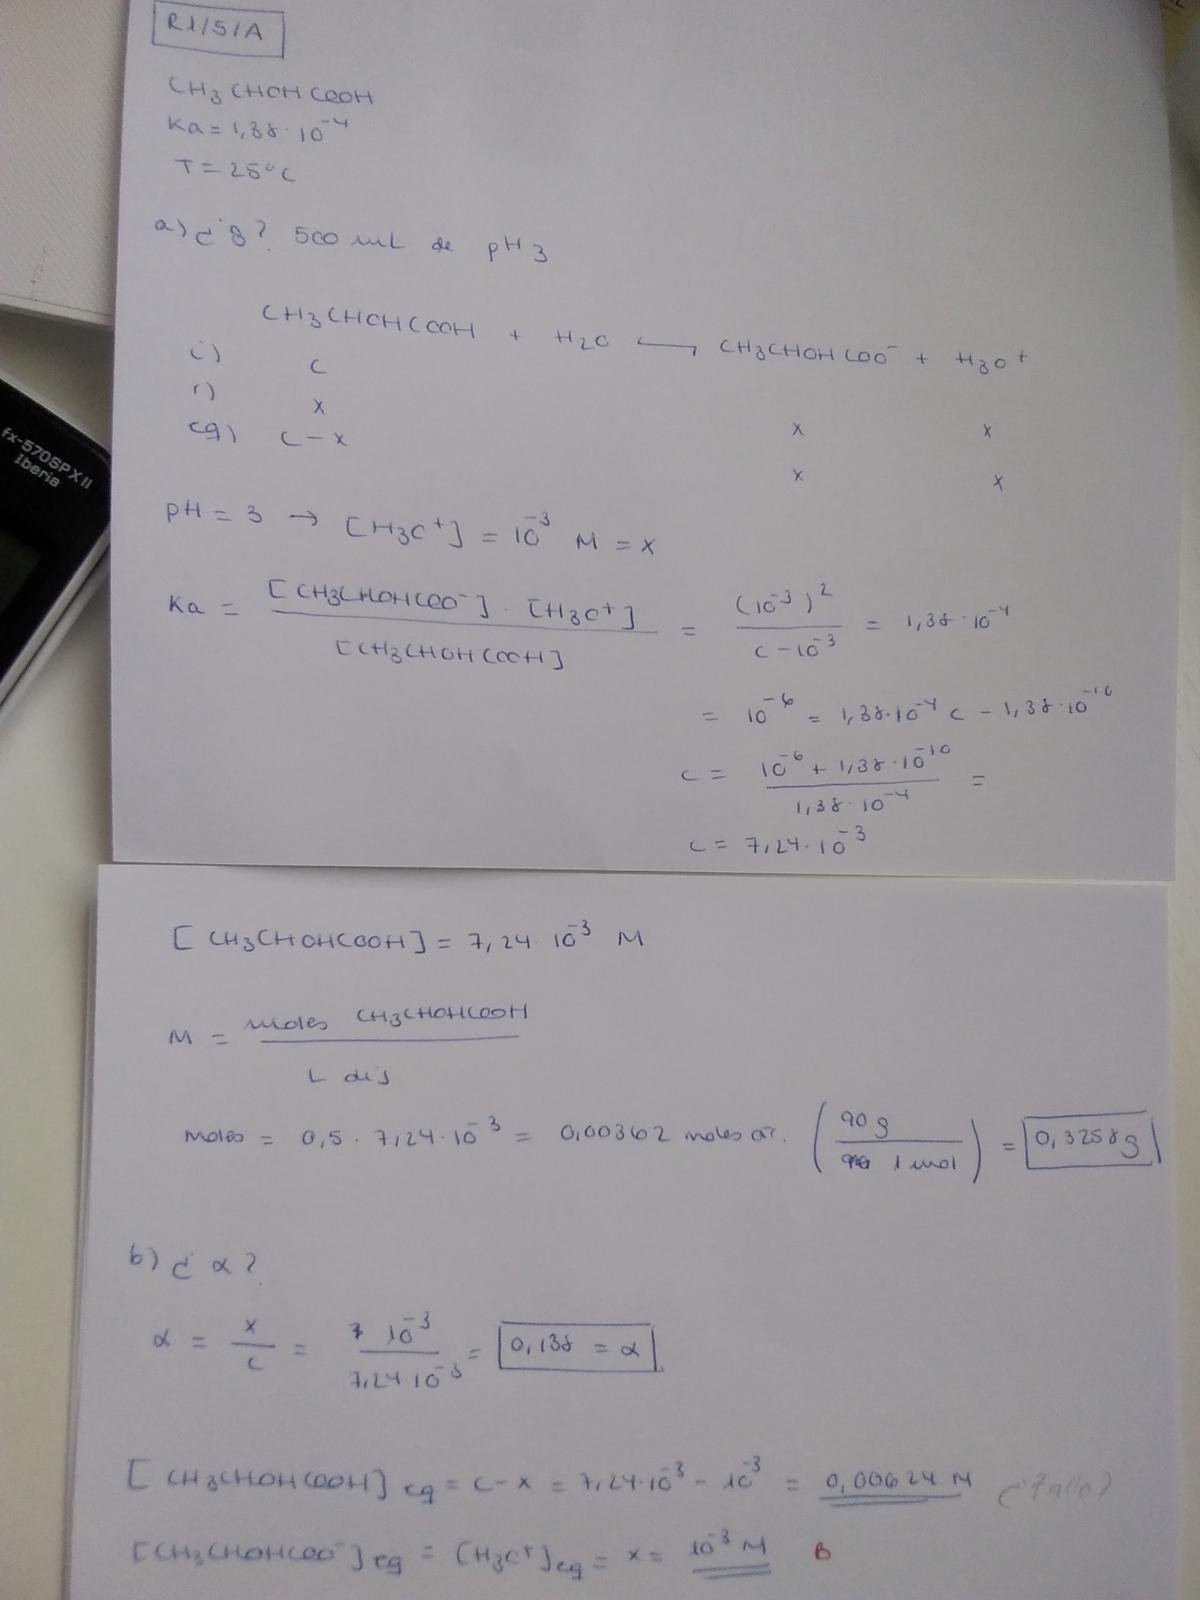 R1/S/A
CH3CHOHCOOH
Ka = 1,38·10^-4
T = 25°C
a) ¿g? 500 mL de pH 3
CH3CHOHCOOH + H2O ⟷ CH3CHOHCOO^- + H3O^+
i) C
r) x x x
eq) C-x x x
pH = 3 → [H3O^+] = 10^-3 M = x
Ka = [CH3CHOHCOO^-]·[H3O^+] / [CH3CHOHCOOH] = (10^-3)^2 / C-10^-3 = 1,38·10^-4
= 10^-6 = 1,38·10^-4 C - 1,38·10^-10
C = 10^-6 + 1,38·10^-10 / 1,38·10^-4 =
C = 7,24·10^-3
fx-570SPXII
Iberia
[CH3CHOHCOOH] = 7,24·10^-3 M
M = moles CH3CHOHCOOH / L dis
moles = 0,5 · 7,24·10^-3 = 0,00362 moles (90 g / 1 mol) = 0,3258 g
b) ¿α?
α = x / C = 10^-3 / 7,24·10^-3 = 0,138 = α
[CH3CHOHCOOH]eq = C-x = 7,24·10^-3 - 10^-3 = 0,00624 M
[CH3CHOHCOO^-]eq = [H3O^+]eq = x = 10^-3 M B